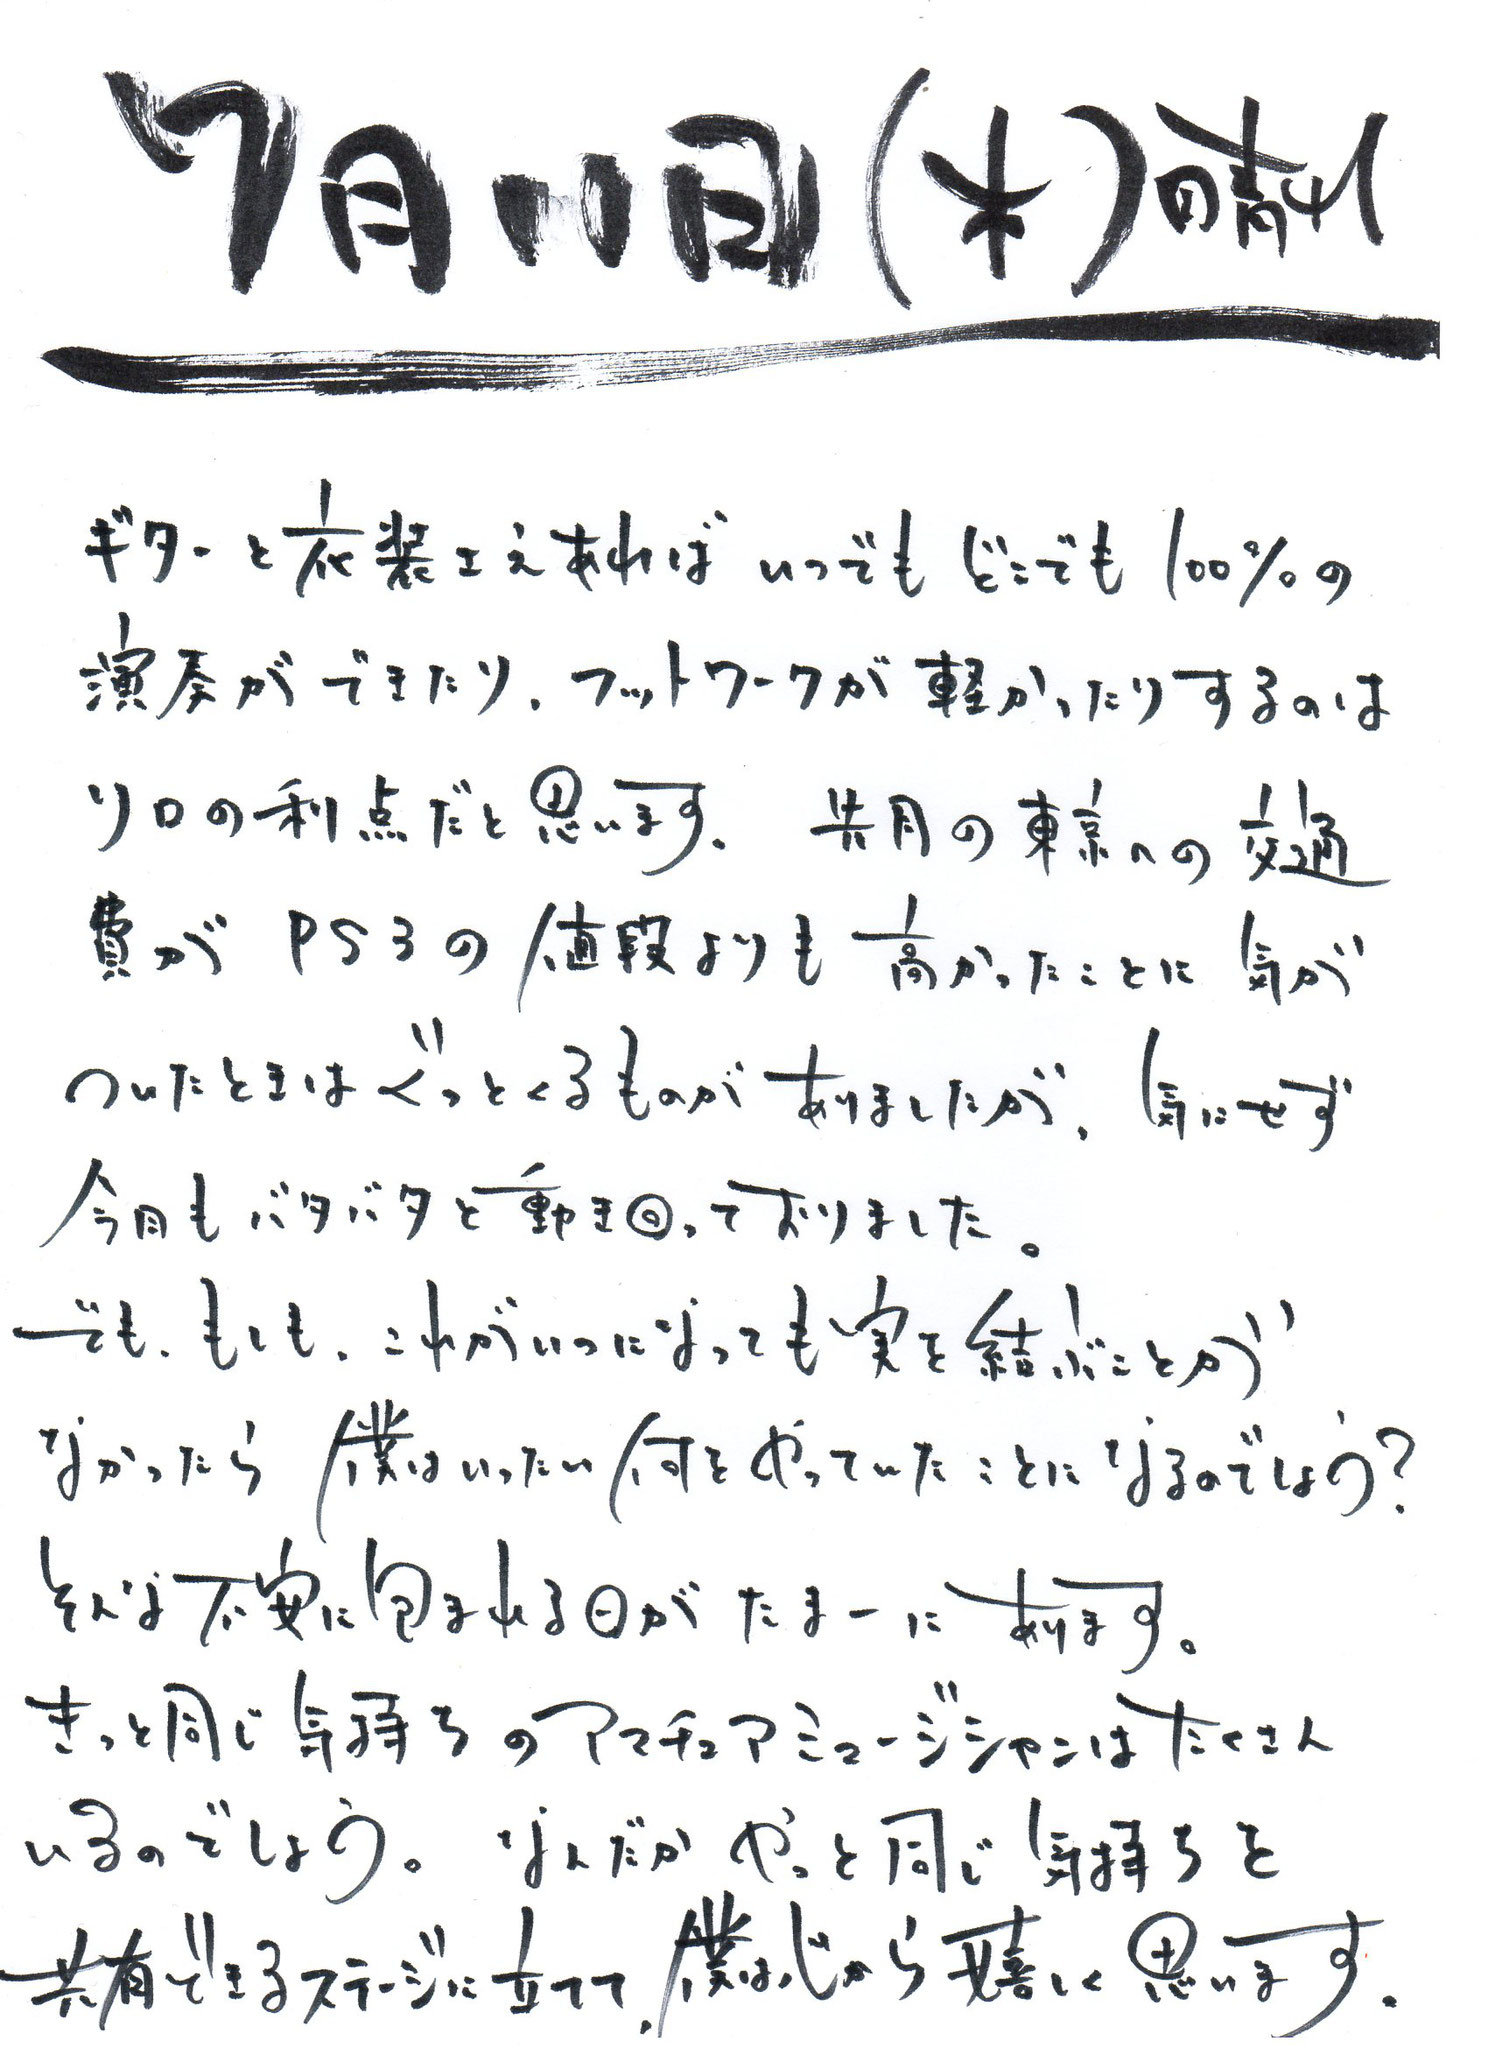 7月11日(木)の晴れ
ギターと衣装さえあれば いつでも どこでも 100%の
演奏ができたり、フットワークが軽かったりするのは
ソロの利点だと思います。 先月の東京への交通
費が PS3の値段よりも高かったことに気が
ついたときはぐっとくるものがありましたが、気にせず
今月もバタバタと動き回っておりました。
でも、もしも、これがいつになっても実を結ぶことが
なかったら 僕はいったい何をやっていたことになるのでしょう?
そんな不安に包まれる日が たまーに あります。
きっと同じ気持ちのアマチュアミュージシャンはたくさん
いるのでしょう。 なんだか やっと同じ気持ちを
共有できるステージに立てて、僕は心から嬉しく思います。